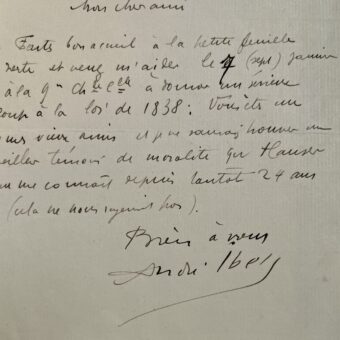 Mon cher ami
Faites bon accueil à la petite feuille
verte et venez m'aider le 7 (sept) janvier
à la 9e Ch^bre C^lle à donner un sérieux
coup à la loi de 1838: Vous êtes un
mes vieux amis et je ne saurais trouver un
meilleur témoin de moralité que Hauser
me connaît depuis tantôt 24 ans
(cela ne nous rajeunit pas).
Bien à vous
André Ibels